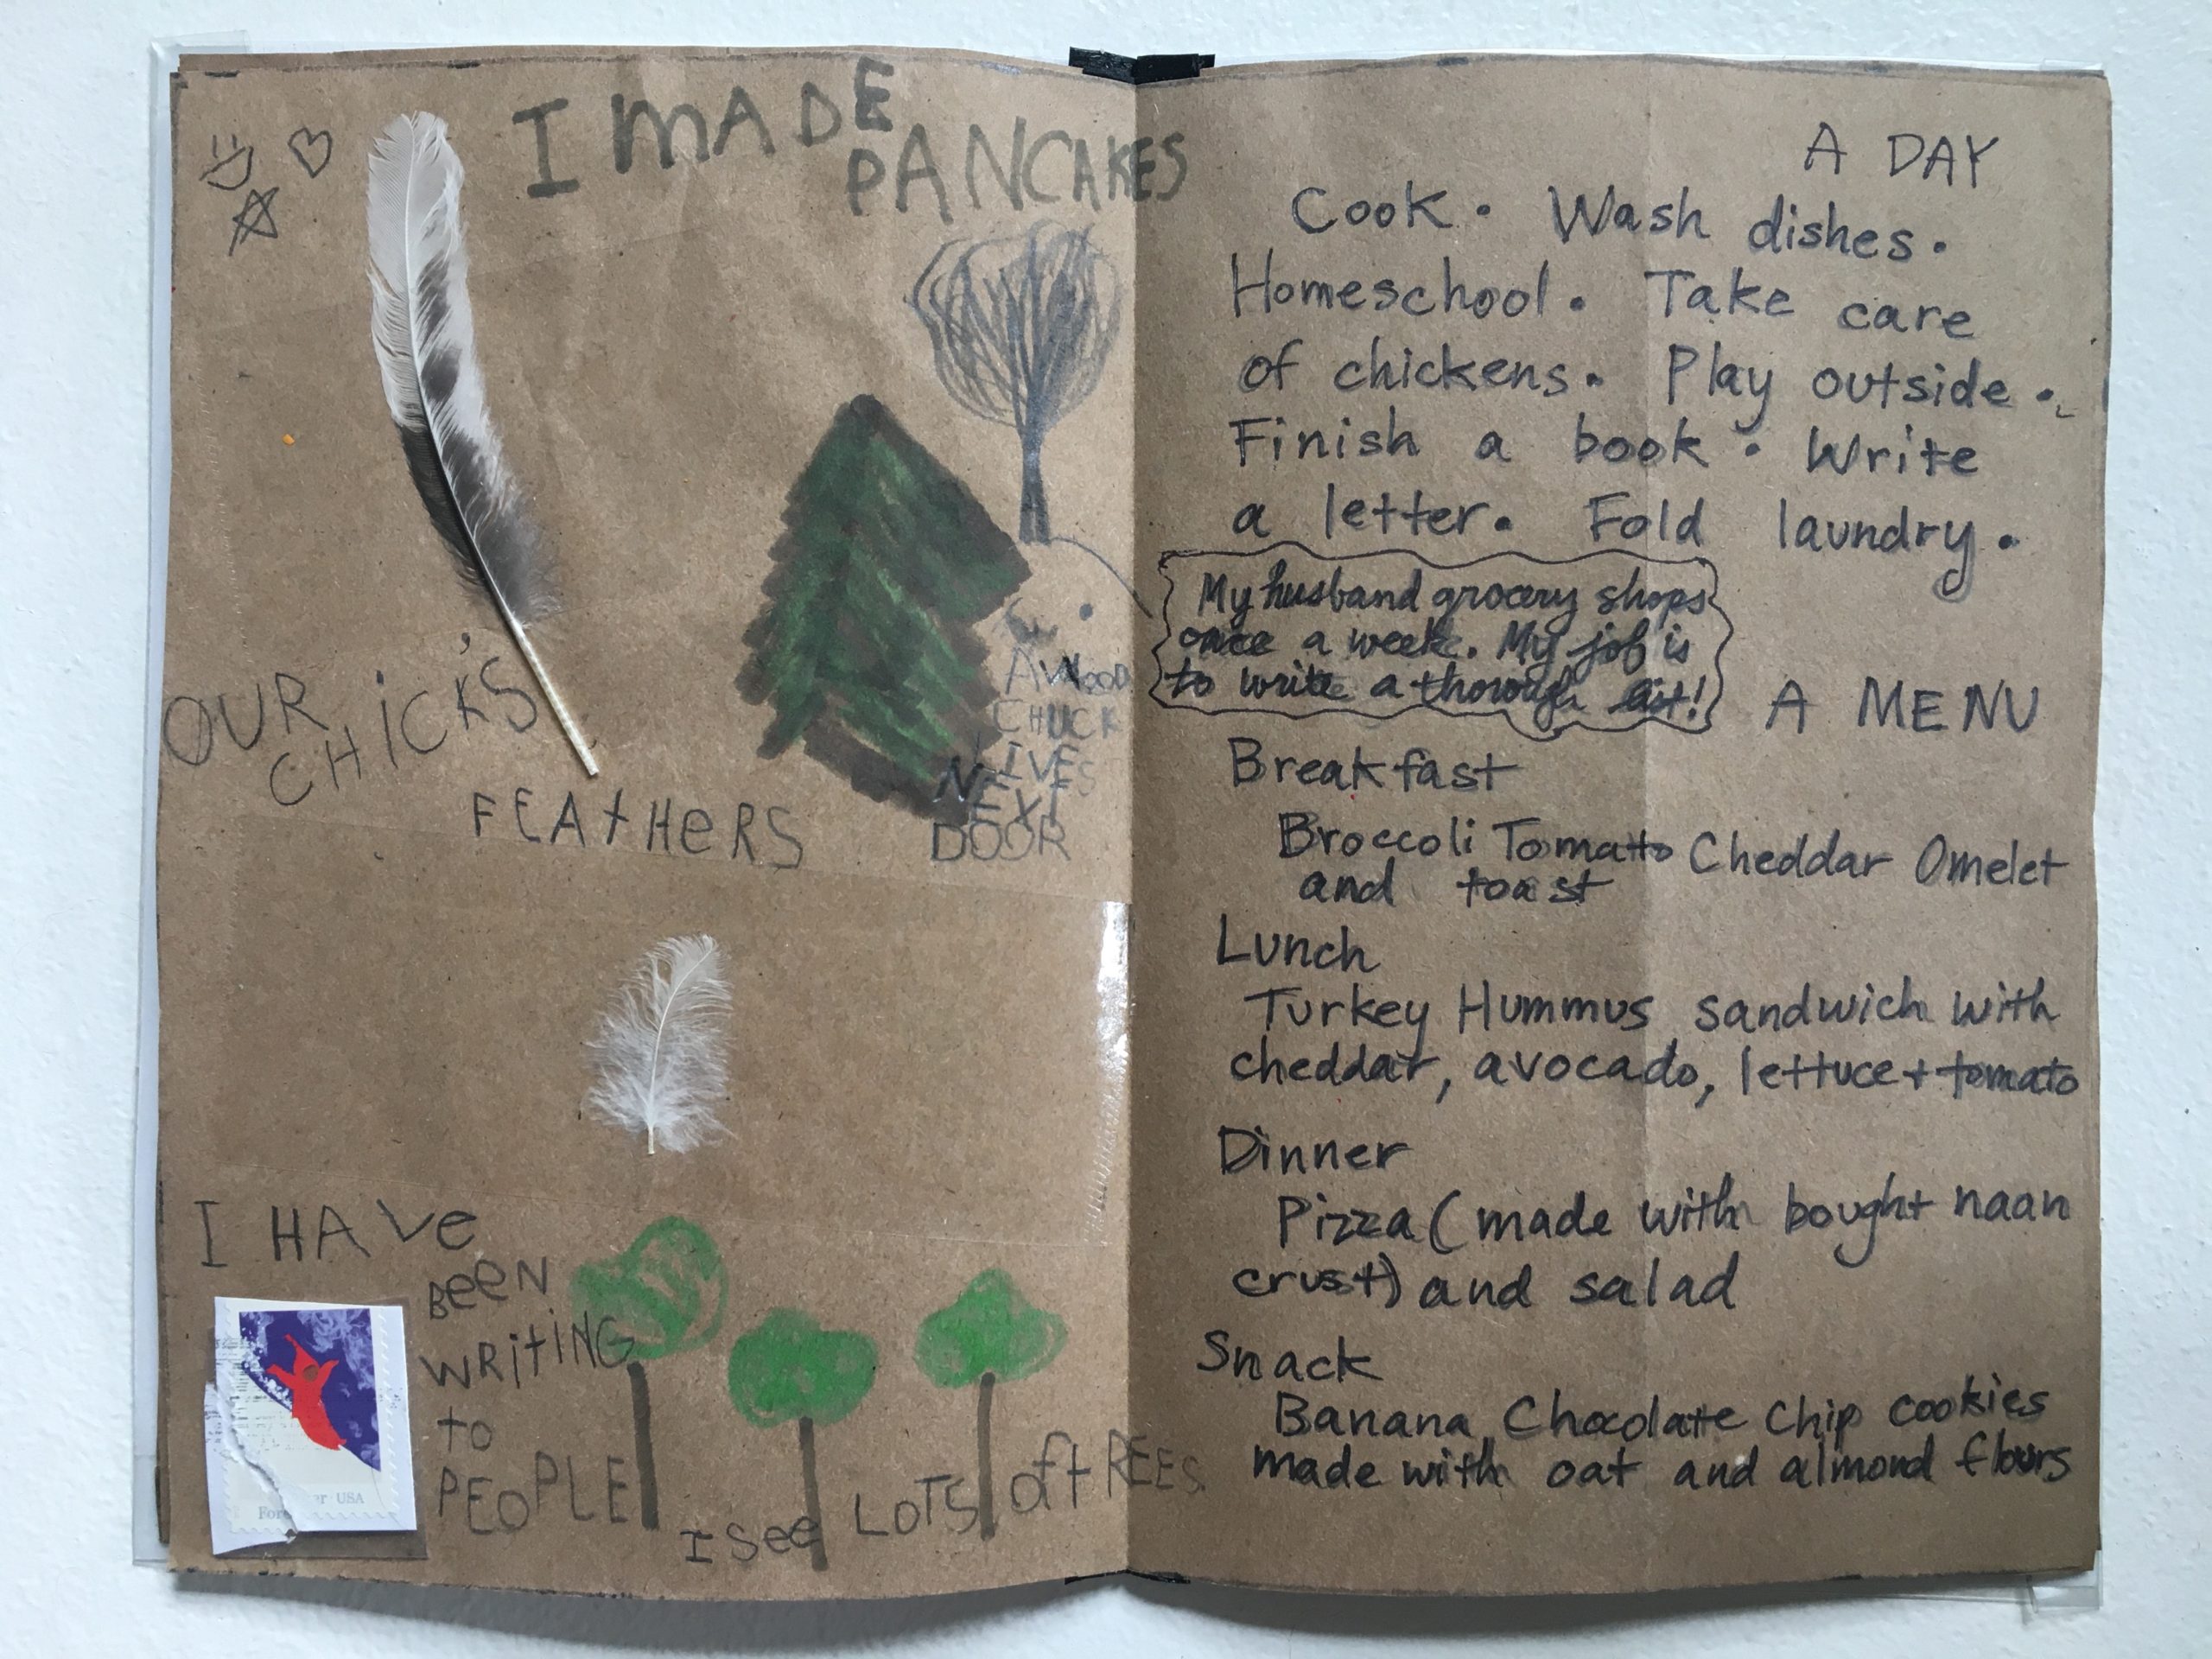 I MADE
PANCAKES
OUR
CHICK'S
FEATHERS
A WOOD
CHUCK
LIVES
NEXT
DOOR
I HAVE
BEEN
WRITING
to
PEOPLE
I see LOTS of tREES.
USA
A DAY
Cook. Wash dishes.
Homeschool. Take care
of chickens. Play outside.
Finish a book. Write
a letter. Fold laundry.
My husband grocery shops
once a week. My job is
to write a thorough list!
A MENU
Breakfast
Broccoli Tomato Cheddar Omelet
and toast
Lunch
Turkey Hummus sandwich with
cheddar, avocado, lettuce + tomato
Dinner
Pizza (made with bought naan
crust) and salad
Snack
Banana Chocolate Chip cookies
made with oat and almond flours